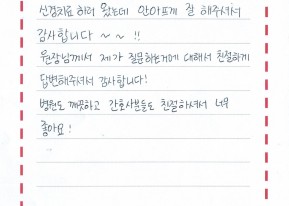 신경치료 하러 왔는데 안아프게 잘 해주셔서
감사합니다 ~ ~ !!
원장님께서 제가 질문하는거에 대해서 친절하게
답변해주셔서 감사합니다!
병원도 깨끗하고 간호사분들도 친절하셔서 너무
좋아요!